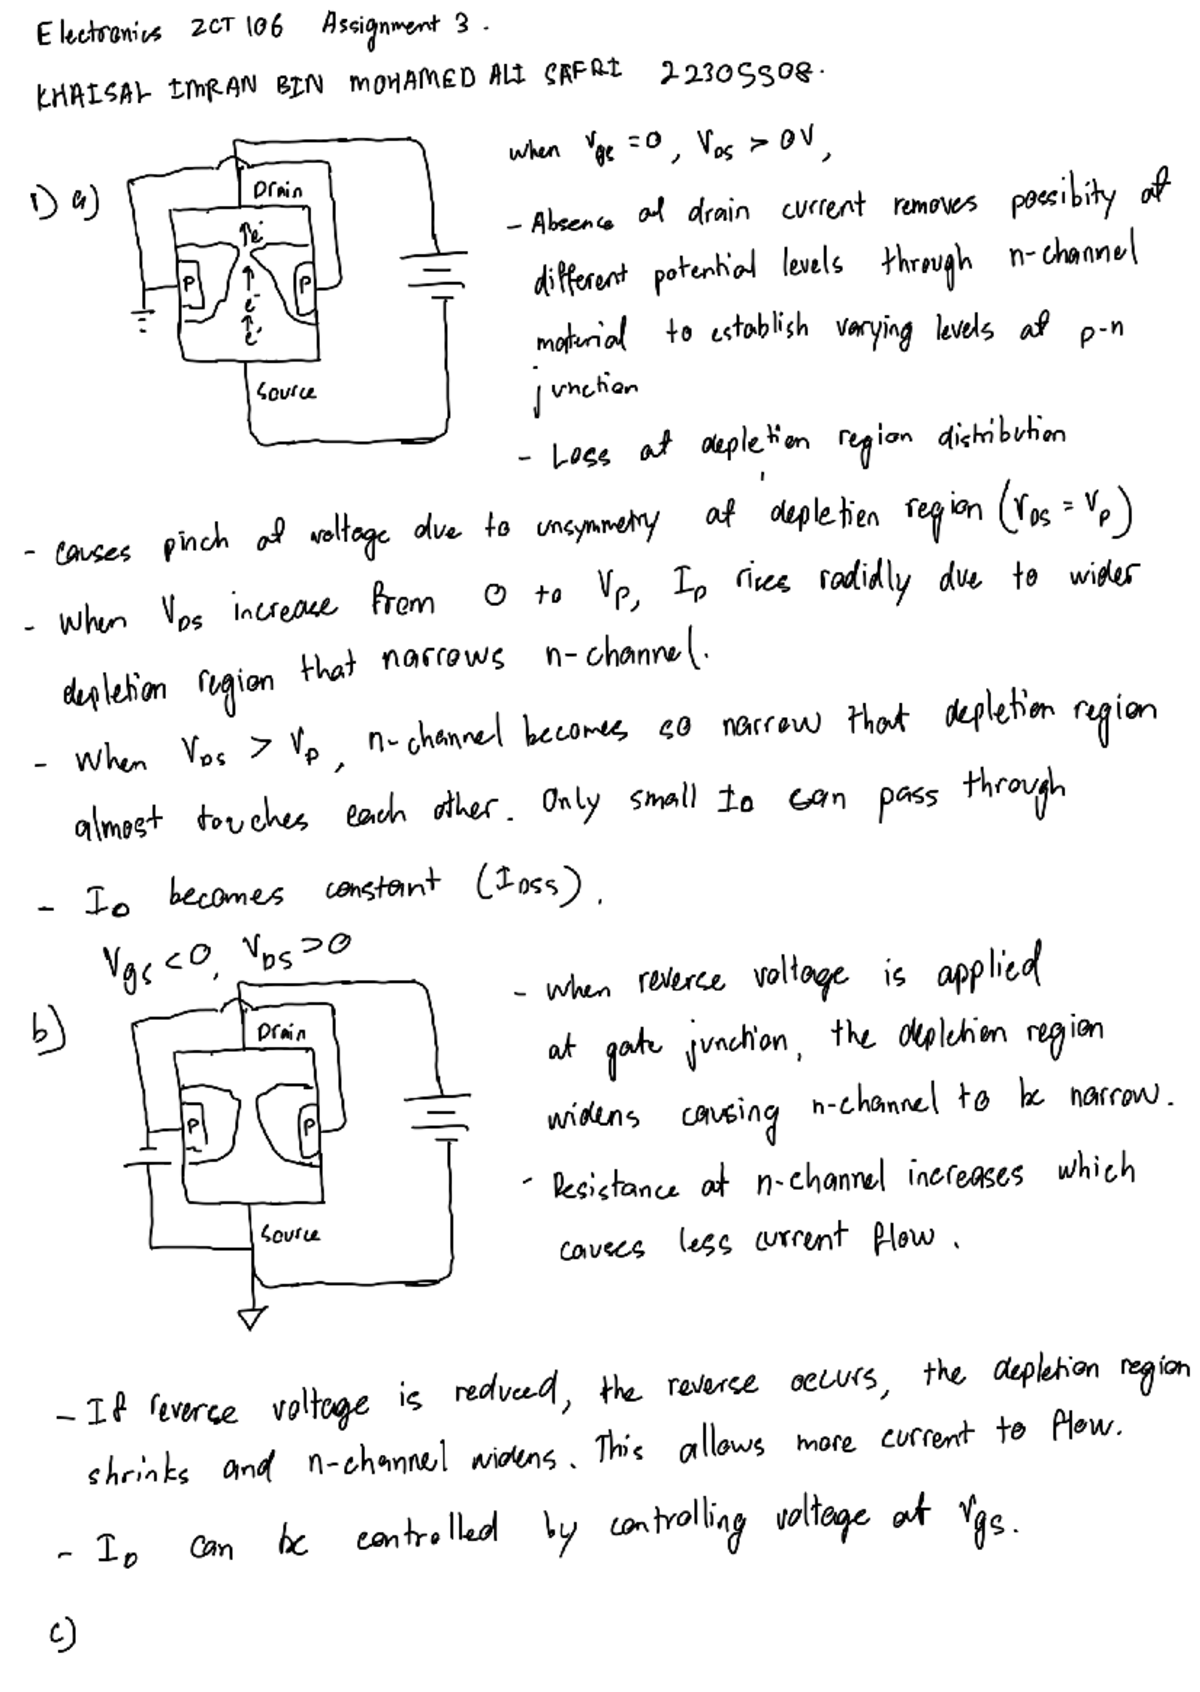 Electronics ZCT 106 Assignment 3.
KHAISAL IMRAN BIN MOHAMED ALI SAFRI 22305508.
1) a)
Drain
↑e⁻
P
P
↑
e⁻
↑
e⁻
Source
when Vgs = 0, VDS > 0V,
- Absence of drain current removes possibity of
different potential levels through n-channel
material to establish varying levels of p-n
junction
- Loss of depletion region distribution
- causes pinch of voltage due to unsymmetry of depletion region (VDS = Vp)
- When VDS increase from 0 to Vp, ID rises radidly due to wider
depletion region that narrows n-channel.
- When VDS > Vp, n-channel becomes so narrow that depletion region
almost touches each other. Only small ID can pass through
- ID becomes constant (IDSS).
Vgs < 0, VDS > 0
b)
Drain
P
P
Source
- when reverse voltage is applied
at gate junction, the depletion region
widens causing n-channel to be narrow.
- Resistance at n-channel increases which
causes less current flow.
- If reverse voltage is reduced, the reverse occurs, the depletion region
shrinks and n-channel widens. This allows more current to flow.
- ID can be controlled by controlling voltage at Vgs.
c)